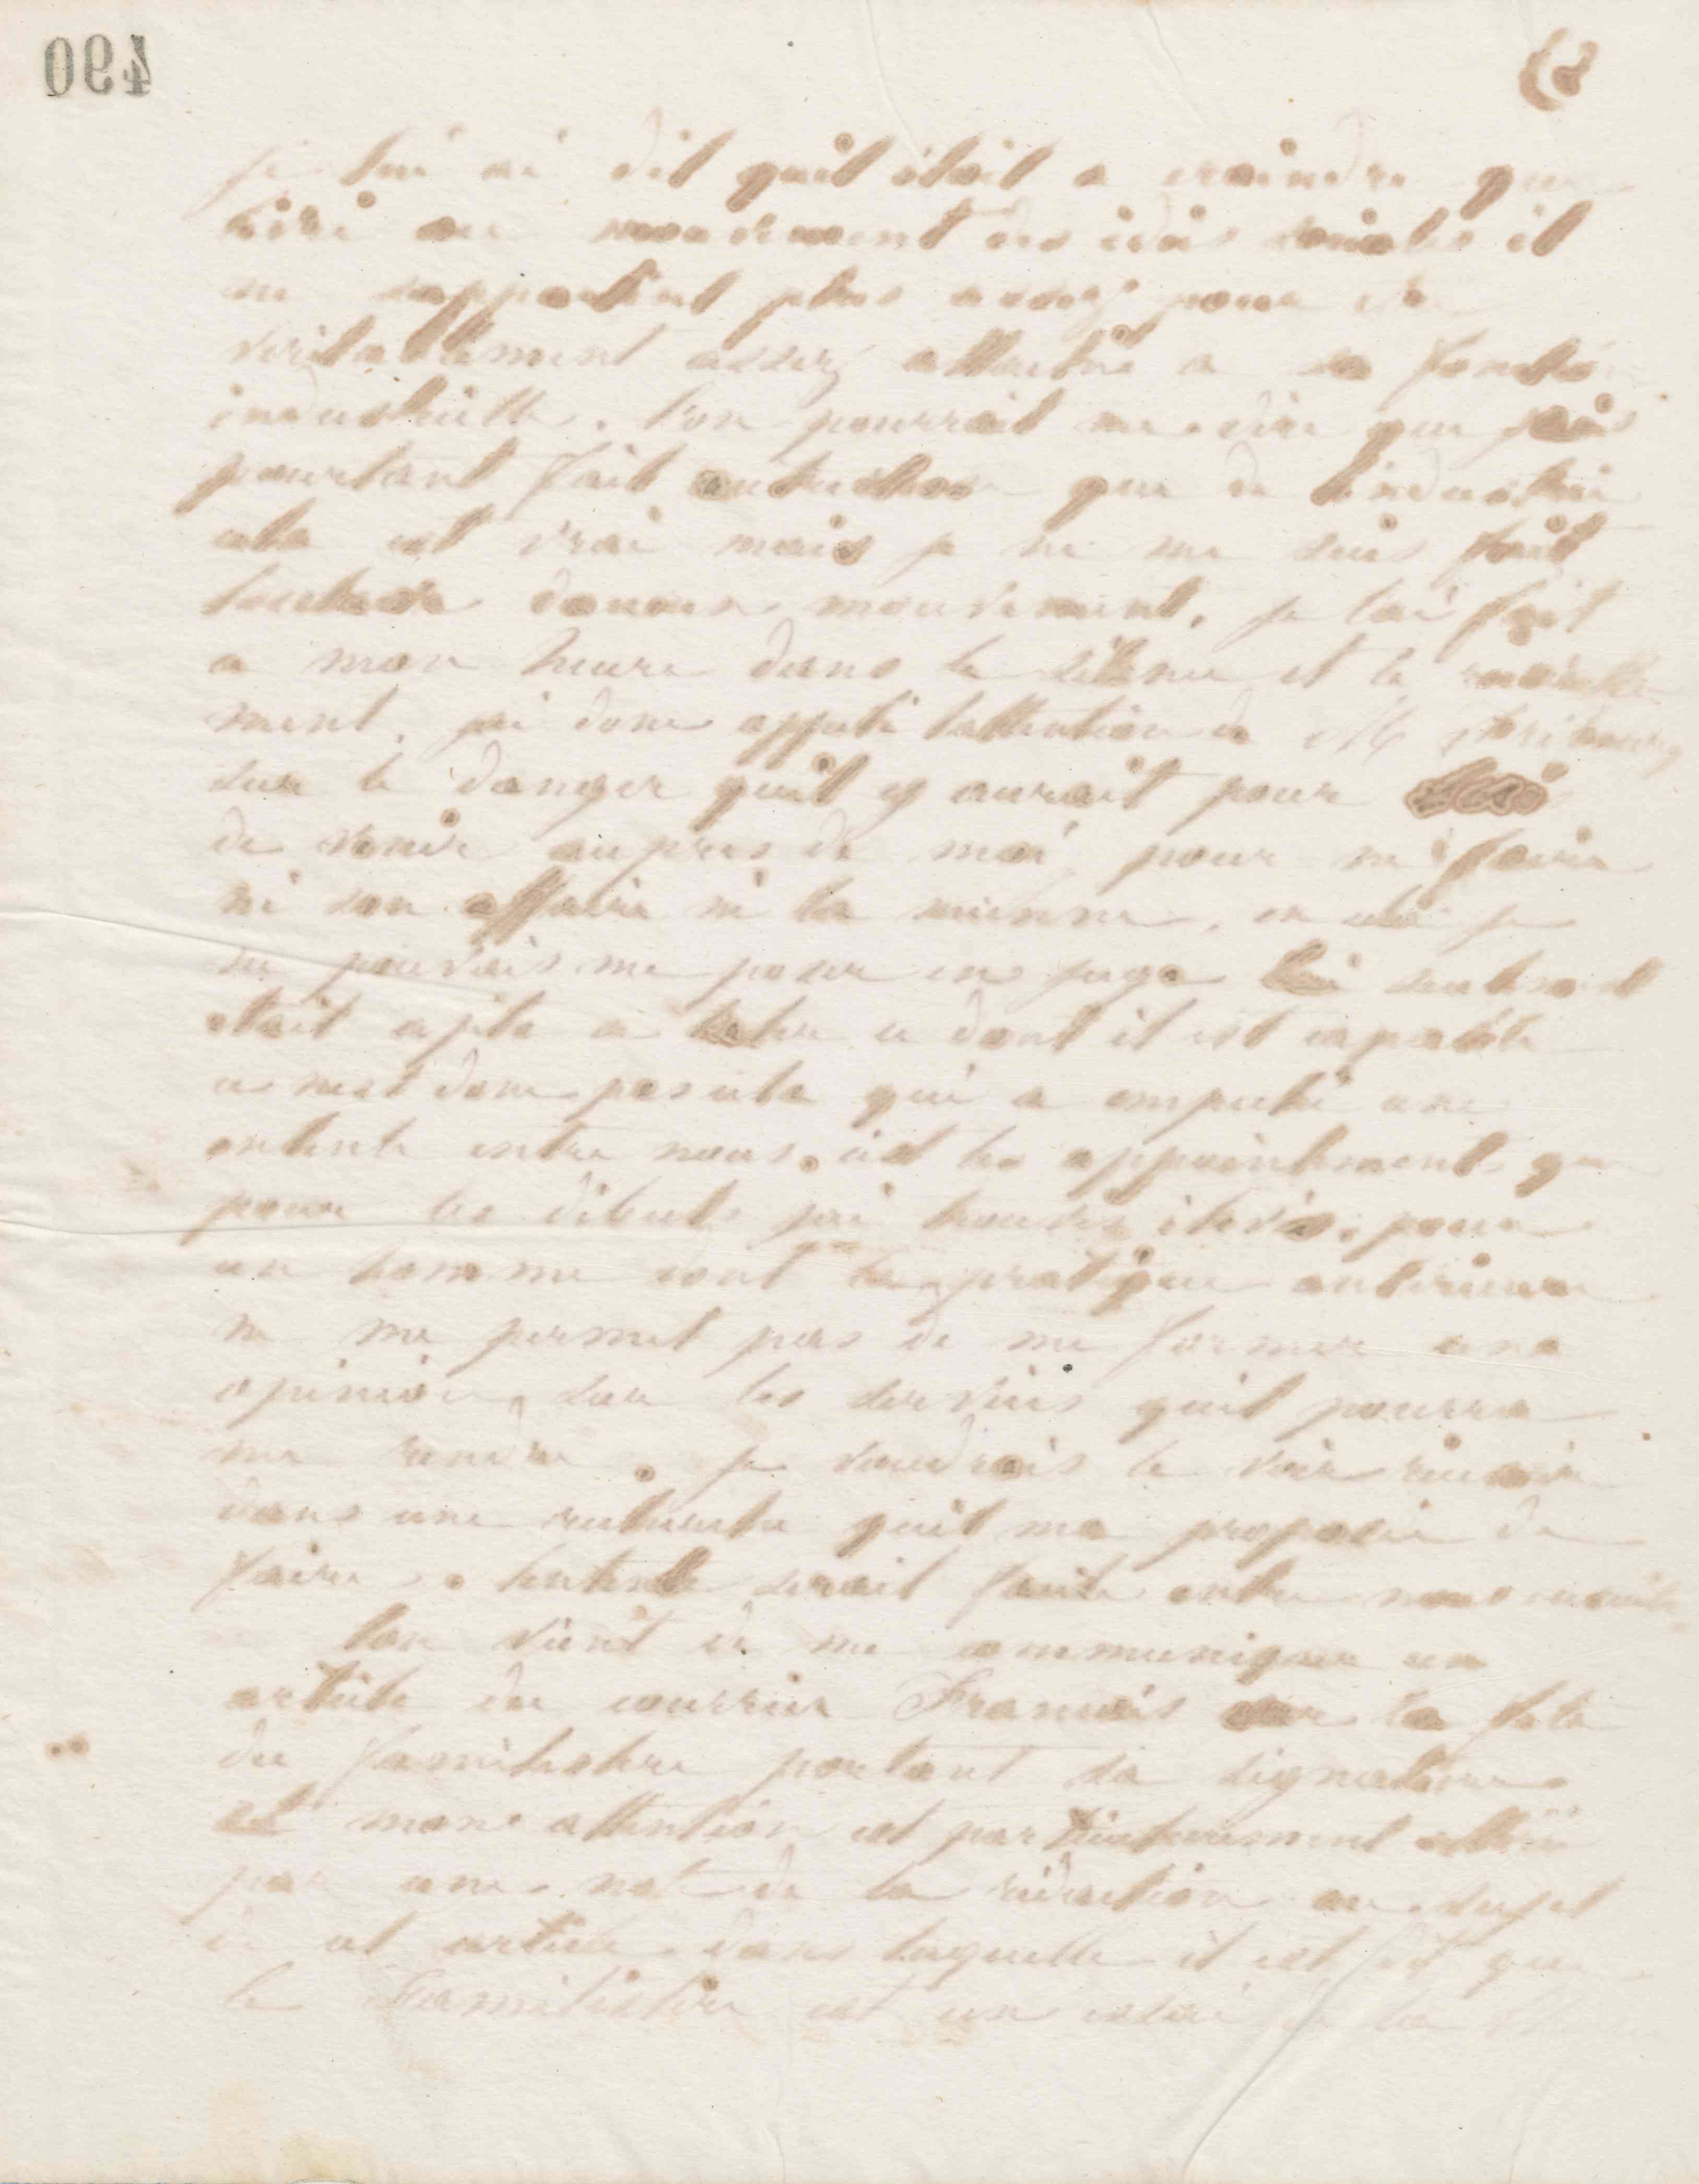 490
je lui ai dit quil était a craindre que
livré au mouvement des idées sociales il
ne sappartint plus assez pour être
véritablement assez attaché a sa fonction
industrielle. l'on pourrait me dire que jai
pourtant fait autre chose que de lindustrie
cela est vrai mais je ne me suis fait
mouvement. je lai fait
a mon heure dans le silence et le recueille
ment. jai donc appelé lattention de M. Fribourg
sur le danger quil y aurait pour lui
de venir auprès de moi pour ne faire
ni son affaire ni la mienne, en cela je
ne pouvais me poser en juge lui seulement
était apte a ce dont il est capable
ce nest donc pas cela qui a empeché une
entente entre nous. cest les appointements que
pour les débuts jai trouvés élevés, pour
un homme dont la pratique antérieure
ne me permet pas de me former une
opinion sur les services quil pourra
me rendre. je voudrais le voir réussir
dans une quil ma proposé de
faire. lentente serait faite entre nous ensuite
lon vient de me communiquer un
article du courrier Français sur la fete
du familistere portant sa signature
et mon attention est particulierement attiré
par une note de la rédaction au sujet
de cet article dans laquelle il est dit que
le Familistère est un essai de la